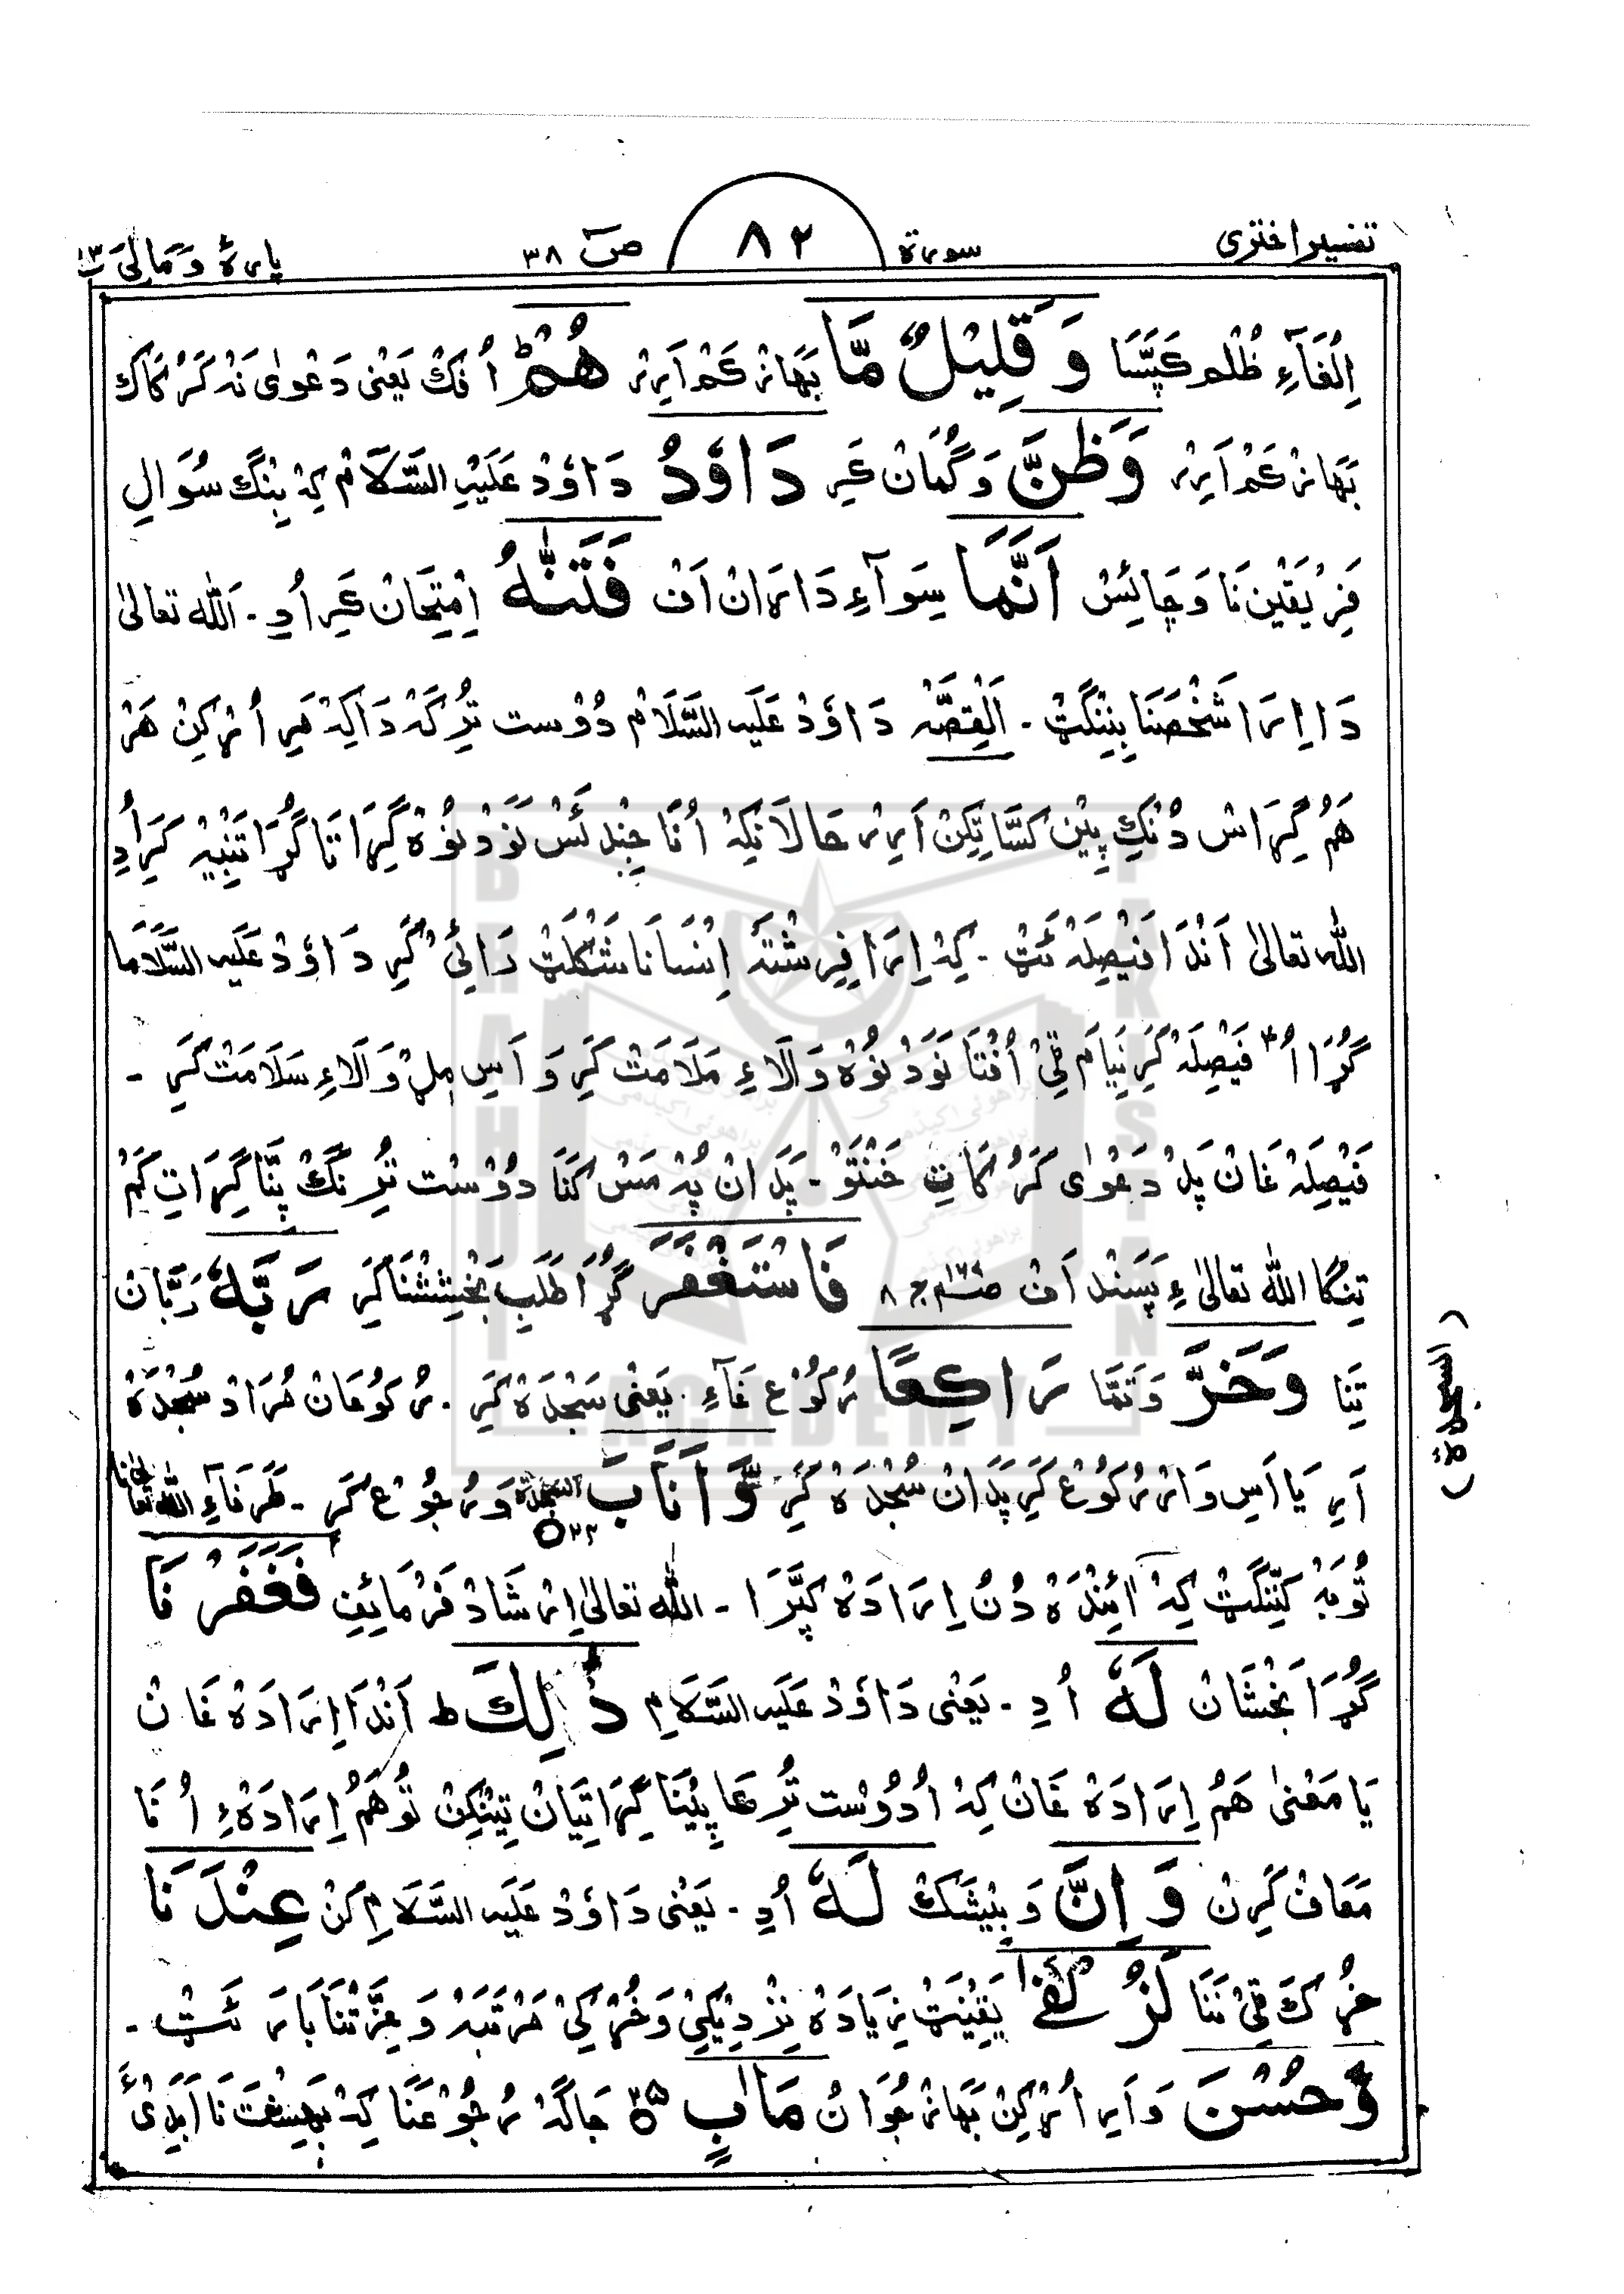 تفسیر اختری سورۃ ۸۲ صٓ ۳۸ پارہٗ وَمَالِیَ
اِلْفَآءِ ظُلْم كَپَّسَا وَقَلِيْلٌ مَّا بَهَازْ كَمْ اَرِیْر هُمْؕ اُفْكْ یَعْنی دَعْوٰی نَهْ كَرُكَاك
بَهَازْ كَمْ اَرِیْر وَظَنَّ وَگُمَانْ كَرِ دَاوٗدُ دَاوٗدْ عَلَیْهِ السَّلَامْ كِہْ بِنِنْگ سُوَالِ
فَرِیْقَیْن نَا وَجَائِسْ اَنَّمَا سِوَآءِ دَارَانْ اَفْ فَتَنّٰهُ اِمْتِحَانْ كَرِ اُدِ ـ اَللّٰه تعالیٰ
دَا اِرَا شَخْصَنَا بِنِنْگَٹْ ـ اَلْقِصَّہْ دَاوٗدْ عَلَیه السَّلَامْ دُوْست تُرِكَہْ دَاكِہْ مَرِ اُرْكِنْ هَرْ
هَمُ گِرَاسْ دُنْكِ پِیْن كَسَّاتِكِنْ اَرِیْر حَالَانْكِہْ اُنَا جِنْدِئَسْ نَوَدْ نُوْہْ گِرَاتَا گُڑَا تَنْبِیْہْ كَرِ اُدِ
اللّٰه تعالیٰ اَنْدَا فَیْصِلَہْ ئَٹْ ـ كِہْ اِرَا فِرِشْتَہْ اِنْسَانَا شَكْلَٹْ دَائِیْ كَرِ دَاوٗدْ عَلَیه السَّلَامَا
گُڑَا اُ فَیْصِلَہْ كَرِ نِیَامْ ٹِیْ اُفْتَا نَوَدْ نُوْہْ وَالَاءِ مَلَامَتْ كَرِ وَاَسِ مِلْ وَالَاءِ سَلَامَتْ كَرِ ـ
فَیْصِلَہْ غَانْ پَدْ دَعْوٰی كَرُكَاتِ خَنْتَوْ ـ پَدَانْ پُہْ مَسْ كَنَا دُوْسْت تُرِنْگْ پِنَّا گِرَاتِ كَمْ
تِنْگَا اللّٰه تعالیٰ ءِ پَسَنْد اَفْ ج ۸ فَاسْتَغْفَرَ گُڑَا طَلَبِ بَخْشِشْنَا كَرِ رَبَّهٗ رَبَّانْ
تِنَا وَخَرَّ وَتَمَّا رَاكِعًا رُكُوْع غَآءِ ـ یَعْنی سَجْدَہْ كَرِ ـ رُكُوْعَانْ مُرَادْ سُجْدَہْ
اَرِ یَا اَسِ وَارْ رُكُوْع كَرِ پَدَانْ سُجْدَہْ كَرِ وَّاَنَابَ السجدة ۲۴ وَرُجُوْع كَرِ ـ طَرَفَآءِ اللّٰه تعالیٰ نا
تُوْبَہْ كَنِّنْگَٹْ كِہْ آئِنْدَہْ دُنْ اِرَادَہْ كَپَّرَا ـ اللّٰه تعالیٰ اِرْشَادْ فَرْمَائِفِ فَغَفَرْنَا
گُڑَا بَخْشَانْ لَهٗ اُدِ ـ یَعْنی دَاوٗدْ عَلَیه السَّلَامِ ذٰلِكَؕ اَنْدَا اِرَادَہْ غَانْ
یَا مَعْنٰی هَمُ اِرَادَہْ غَانْ كِہْ اُ دُوْسْت تُرِ كَا پِیْنَا گِرَاتِیَانْ تِیْنِكِنْ تُوْ هَمُ اِرَادَہْ ءِ اُنَا
مَعَافْ كَرِنْ وَاِنَّ وَبِیْشَكْ لَهٗ اُدِ ـ یَعْنی دَاوٗدْ عَلَیه السَّلَامِ كِنْ عِنْدَنَا
خُرْكَ ٹِیْ نَنَا لَزُلْفٰى یَقِیْنَٹْ زِیَادَہْ نِزْدِیْكِیْ وَخُرْكِیْ مَرْتَبَہْ وَعِزَّتْنَا بَارَ ئَٹْ ـ
وَحُسْنَ وَاَرِ اُرْكِنْ بَهَازْ جُوَانْ مَاٰبٍ ۲۵ جَاگَہْ رُجُوْعَنَّا كِہْ بَهِشْتَ نَا اَبَدِیْ
(السجدة)